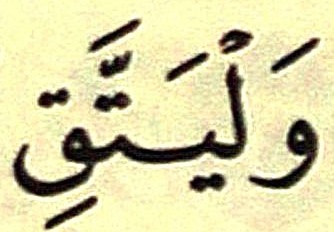 وَلْيَتَّقِ